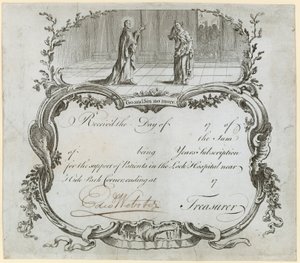 Go and Sin no more.
Received the Day of 17 of
the Sum
of being Years Subscription
for the support of Patients in the Lock Hospital near
Hide Park Corner, ending at 17
Treasurer